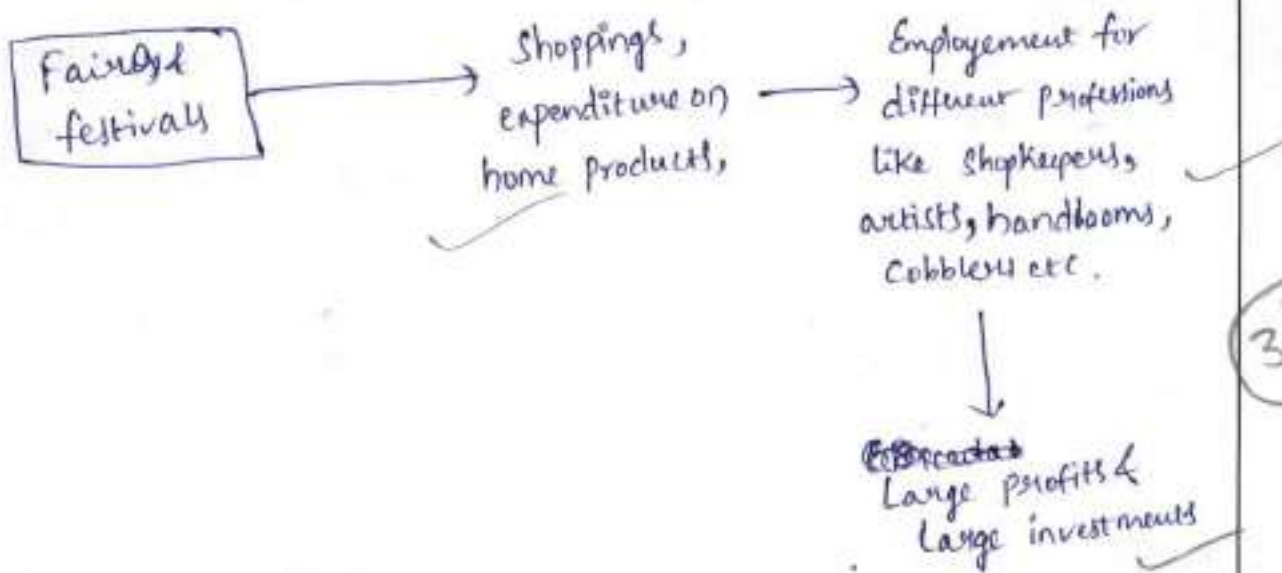 Fairs &
festivals
Shoppings,
expenditure on
home products,
Employement for
different professions
like shopkeepers,
artists, handlooms,
Cobblers etc.
Large profits &
large investments
3